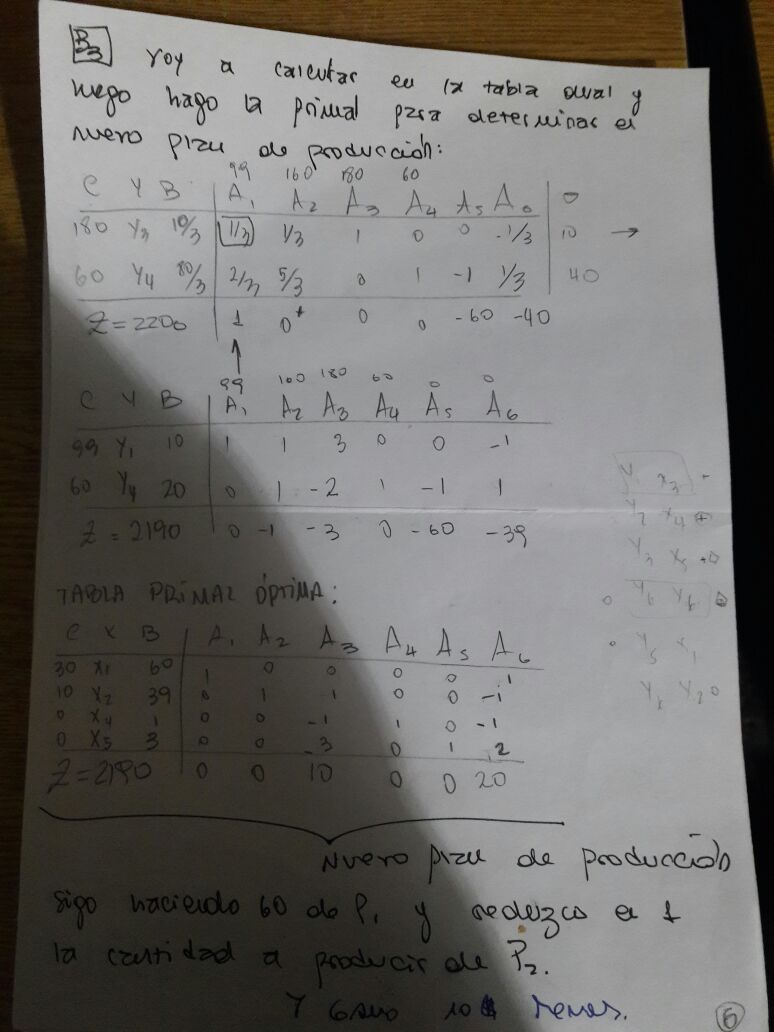 B3 voy a calcular en la tabla dual y
luego hago la primal para determinar el
nuevo plan de producción:
99 160 180 60
C Y B A1 A2 A3 A4 A5 A6 θ
180 Y3 10/3 1/3 1/3 1 0 0 -1/3 10 →
60 Y4 80/3 2/3 5/3 0 1 -1 1/3 40
Z = 2200 1 0* 0 0 -60 -40
↑
99 160 180 60 0 0
C Y B A1 A2 A3 A4 A5 A6
99 Y1 10 1 1 3 0 0 -1
60 Y4 20 0 1 -2 1 -1 1
Z = 2190 0 -1 -3 0 -60 -39
Y1 x3
Y2 x4
Y3 x5
Y4 x6
Y5 x1
x2
TABLA PRIMAL ÓPTIMA:
C X B A1 A2 A3 A4 A5 A6
30 X1 60 1 0 0 0 0 1
10 X2 39 0 1 1 0 0 -1
0 X4 1 0 0 -1 1 0 -1
0 X5 3 0 0 -3 0 1 2
Z = 2190 0 0 10 0 0 20
Nuevo plan de producción
Sigo haciendo 60 de P1 y reduzco en 1
la cantidad a producir de P2.
Y Gano 10$ menos.
6